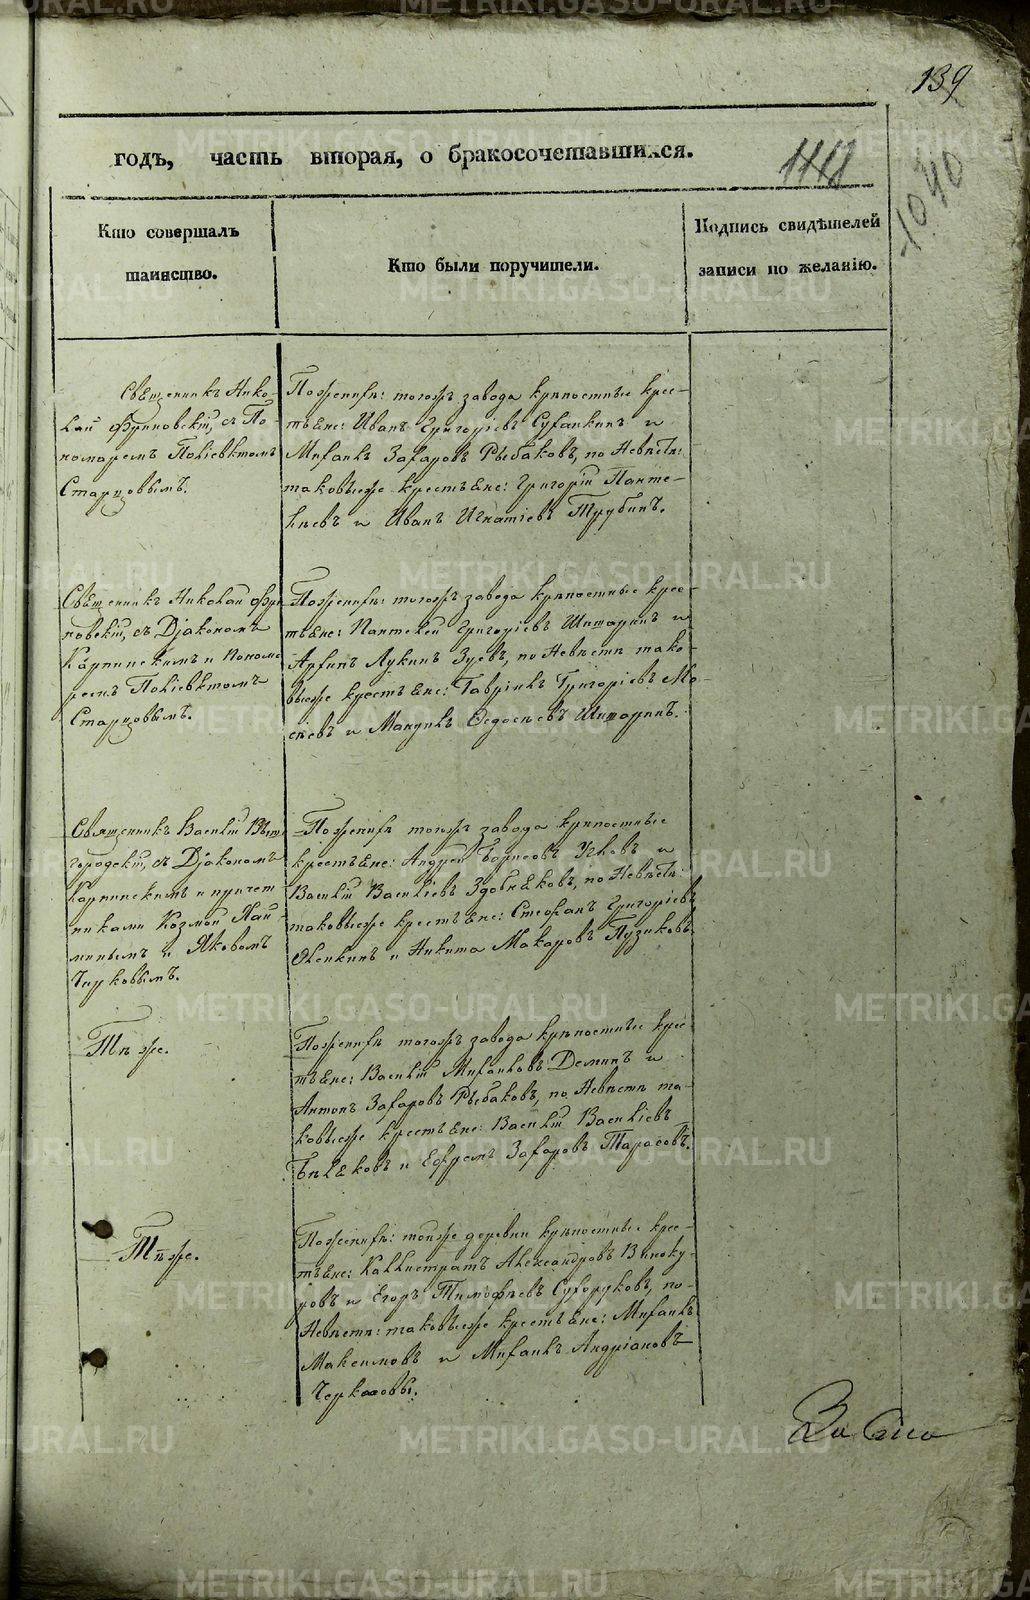 139
годъ, часть вторая, о бракосочетавшихся.
1040
Кто совершалъ
таинство.
Кто были поручители.
Подпись свидѣтелей
записи по желанію.
Священникъ Нико-
лай Фриновскій, съ По-
номаремъ Поліевктомъ
Старцовымъ.
По женихѣ: тогожъ завода крѣпостные крес-
тьяне: Иванъ Григорьевъ и
Михаилъ Захаровъ Рыбаковъ, по Невѣстѣ:
таковыеже крестьяне: Григорій Панте-
лѣевъ и Иванъ Игнатіевъ Трубинъ.
Священникъ Николай Фри
новскій, съ Діакономъ
Карпинскимъ и Понома
ремъ Поліевктомъ
Старцовымъ.
По женихѣ: тогожъ завода крѣпостные крес-
тьяне: Пантелей Григорьевъ Шишаринъ и
Архипъ Лукинъ Зуевъ, по Невѣстѣ тако-
выеже крестьяне: Гаврилъ Григорьевъ Мо-
сѣевъ и Федосѣевъ Шишаринъ.
Священникъ Василій Выш
городскій, съ Діакономъ
Карпинскимъ и причет
никами Козмой
и Яковомъ
По женихѣ тогожъ завода крѣпостные
крестьяне: Андрей Борисовъ и
Василій Васильевъ Здобняковъ, по Невѣстѣ:
таковыеже крестьяне: Стефанъ Григорьевъ
и Никита Макаровъ Пузиковъ.
Тѣ же.
По женихѣ тогожъ завода крѣпостные крес-
тьяне: Василій Михаиловъ Деминъ и
Антонъ Захаровъ Рыбаковъ, по Невѣстѣ та-
ковыеже крестьяне: Василій Васильевъ
Бѣляковъ и Ефремъ Захаровъ Тарасовъ.
Тѣже.
По женихѣ: тойже деревни крѣпостные крес-
тьяне: Каллистратъ Александровъ Виноку-
ровъ и Егоръ Тимофѣевъ Сухоруковъ, по
Невѣстѣ: таковыеже крестьяне: Михаилъ
Максимовъ и Михаилъ Андріановъ
METRIKI.GASO-URAL.RU